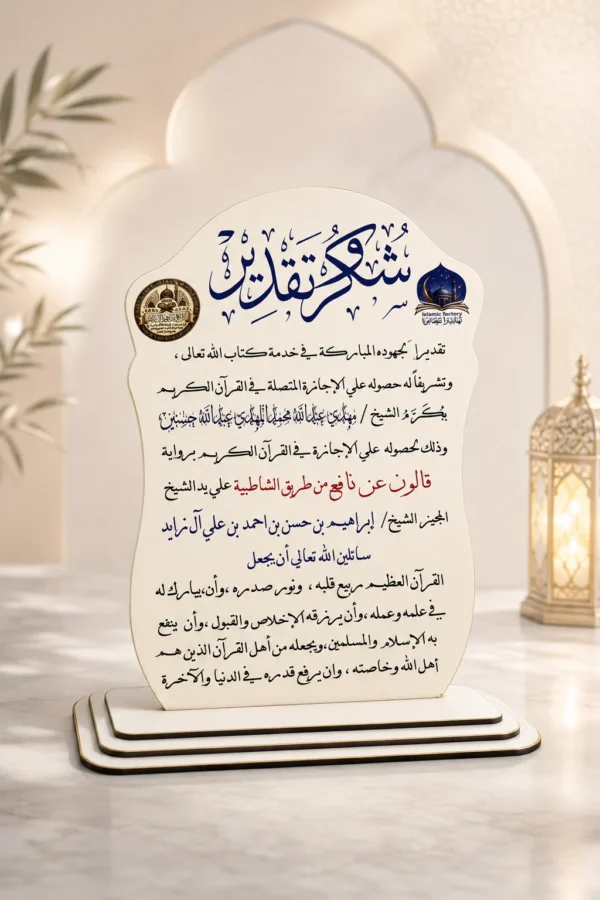 شكر وتقدير
Islamic factory
تقديرا لجهوده المباركة في خدمة كتاب الله تعالى ،
وتشريفاً له حصوله علي الإجازة المتصلة في القرآن الكريم
يُكَرَّمُ الشيخ / مهدي عبدالله محمد المهدي عبدالله حسنين
وذلك لحصوله علي الإجازة في القرآن الكريم برواية
قالون عن نافع من طريق الشاطبية علي يد الشيخ
المجيز الشيخ/ إبراهيم بن حسن بن احمد بن علي آل زايد
سائلين الله تعالي أن يجعل
القرآن العظيم ربيع قلبه ، ونور صدره ،وأن،يبارك له
في علمه وعمله ،وأن يرزقه الإخلاص والقبول ،وأن ينفع
به الإسلام والمسلمين،ويجعله من أهل القرآن الذين هم
أهل الله وخاصته ، وان يرفع قدره في الدنيا والآخرة